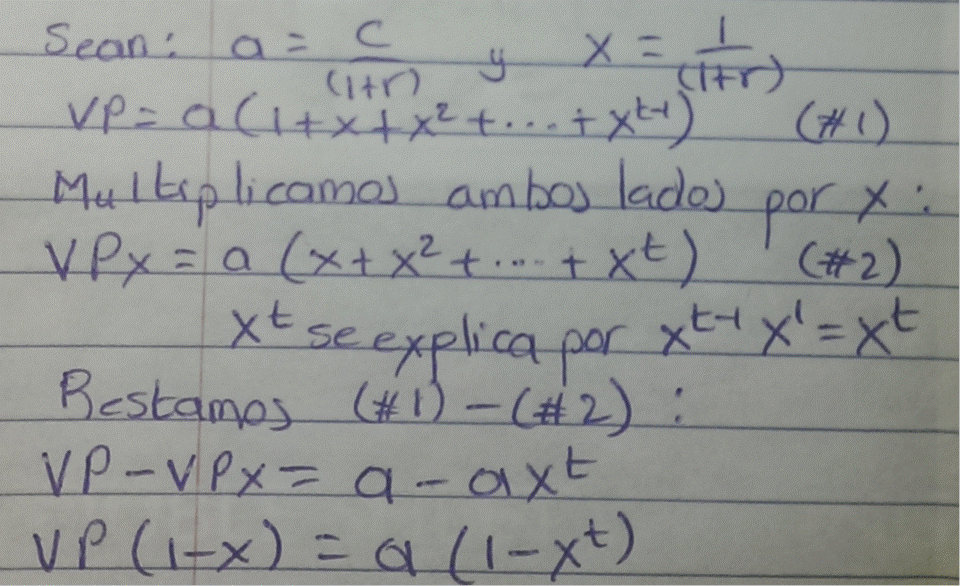 Sean: a = C/(1+r) y x = 1/(1+r)
VP = a(1+x+x²+...+x^(t-1)) (#1)
Multiplicamos ambos lados por x:
VPx = a (x+x²+...+x^t) (#2)
x^t se explica por x^(t-1) x^1 = x^t
Restamos (#1) - (#2) :
VP - VPx = a - ax^t
VP (1-x) = a (1-x^t)